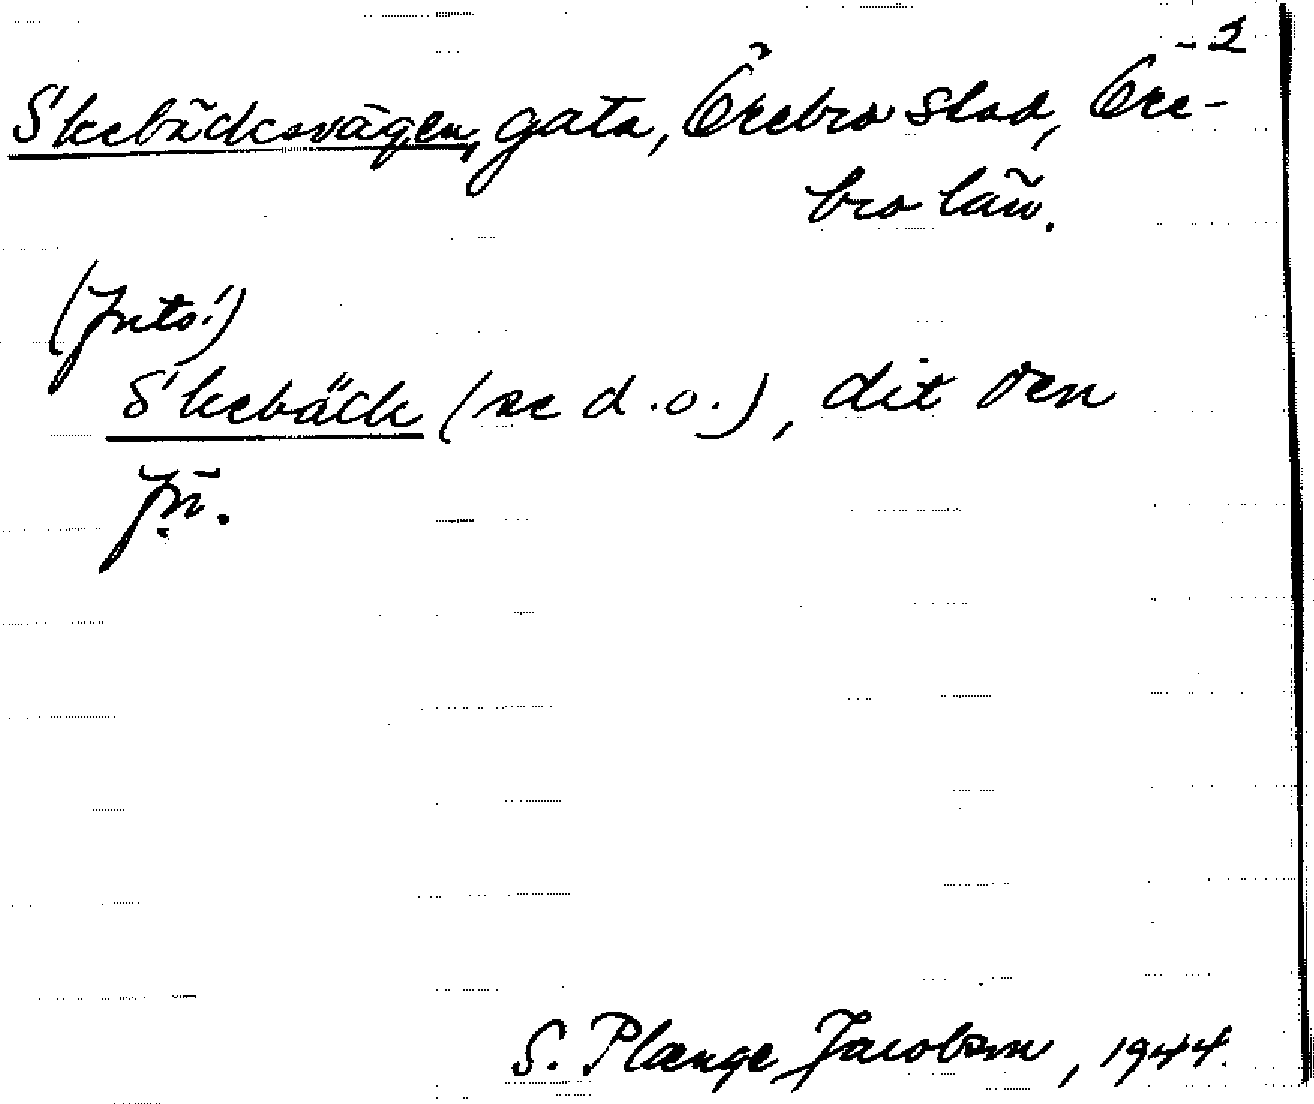 -2
Skebäcksvägen, gata, Örebro stad, Öre-
bro län.
Skebäck (se d.o.), dit den
S. Plange Jacobson, 1944.